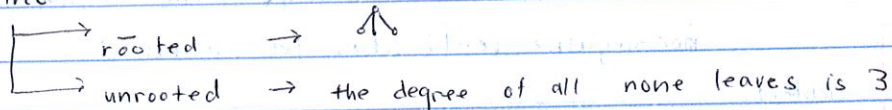 rooted →
unrooted → the degree of all none leaves is 3